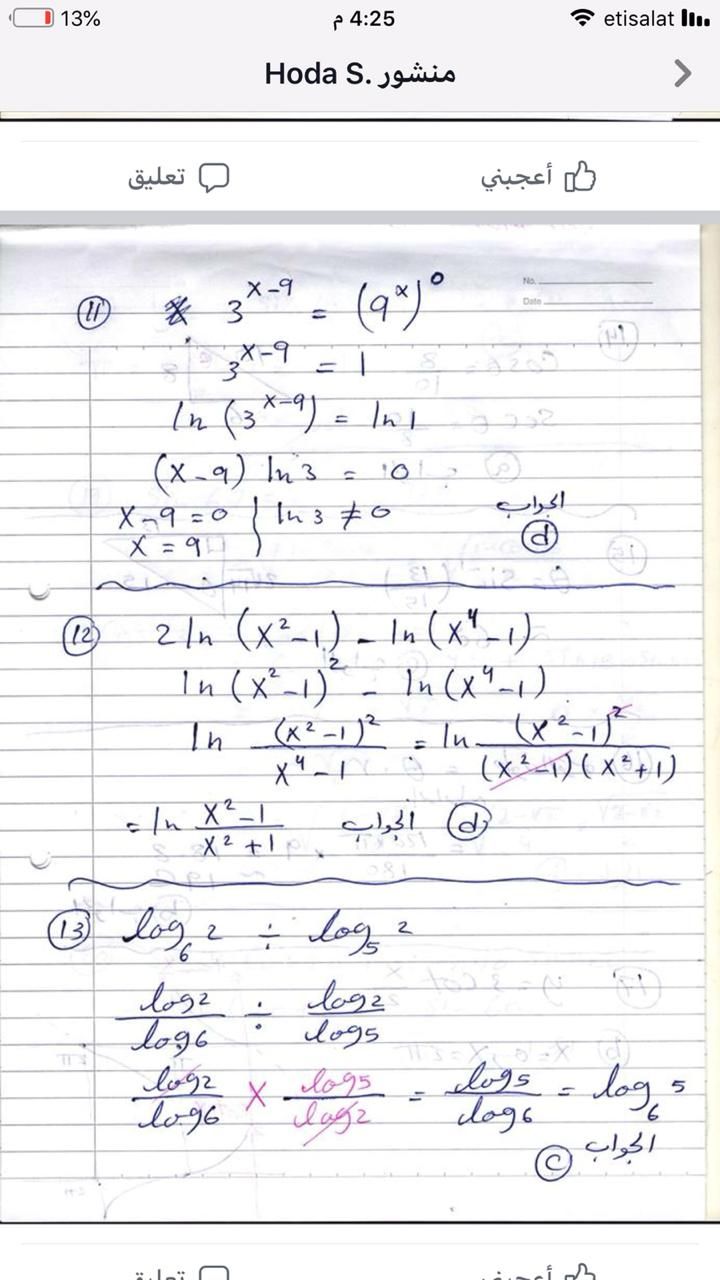 13% 4:25 م etisalat
منشور Hoda S.
أعجبني تعليق
No.
Date
11 3^(x-9) = (9^x)^0
3^(x-9) = 1
ln (3^(x-9)) = ln 1
(x-9) ln 3 = 0
x-9 = 0 } ln 3 ≠ 0 الجواب
x = 9 d
12 2 ln (x²-1) - ln (x⁴-1)
ln (x²-1)² - ln (x⁴-1)
ln (x²-1)² / (x⁴-1) = ln (x²-1)² / (x²-1)(x²+1)
= ln (x²-1) / (x²+1) الجواب d
13 log₆ 2 ÷ log₅ 2
log 2 / log 6 ÷ log 2 / log 5
log 2 / log 6 × log 5 / log 2 = log 5 / log 6 = log₆ 5
الجواب c
أعجبني تعليق